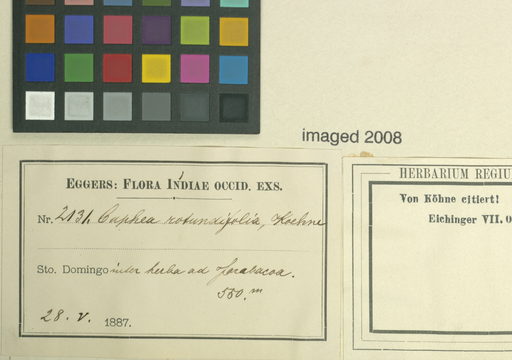 imaged 2008
EGGERS: FLORA INDIAE OCCID. EXS.
Nr. 2131. Cuphea rotundifolia, Koehne
Sto. Domingo inter herba ad Jarabacoa.
550.m
28. V. 1887.
HERBARIUM REGIU
Von Köhne citiert!
Eichinger VII. 0